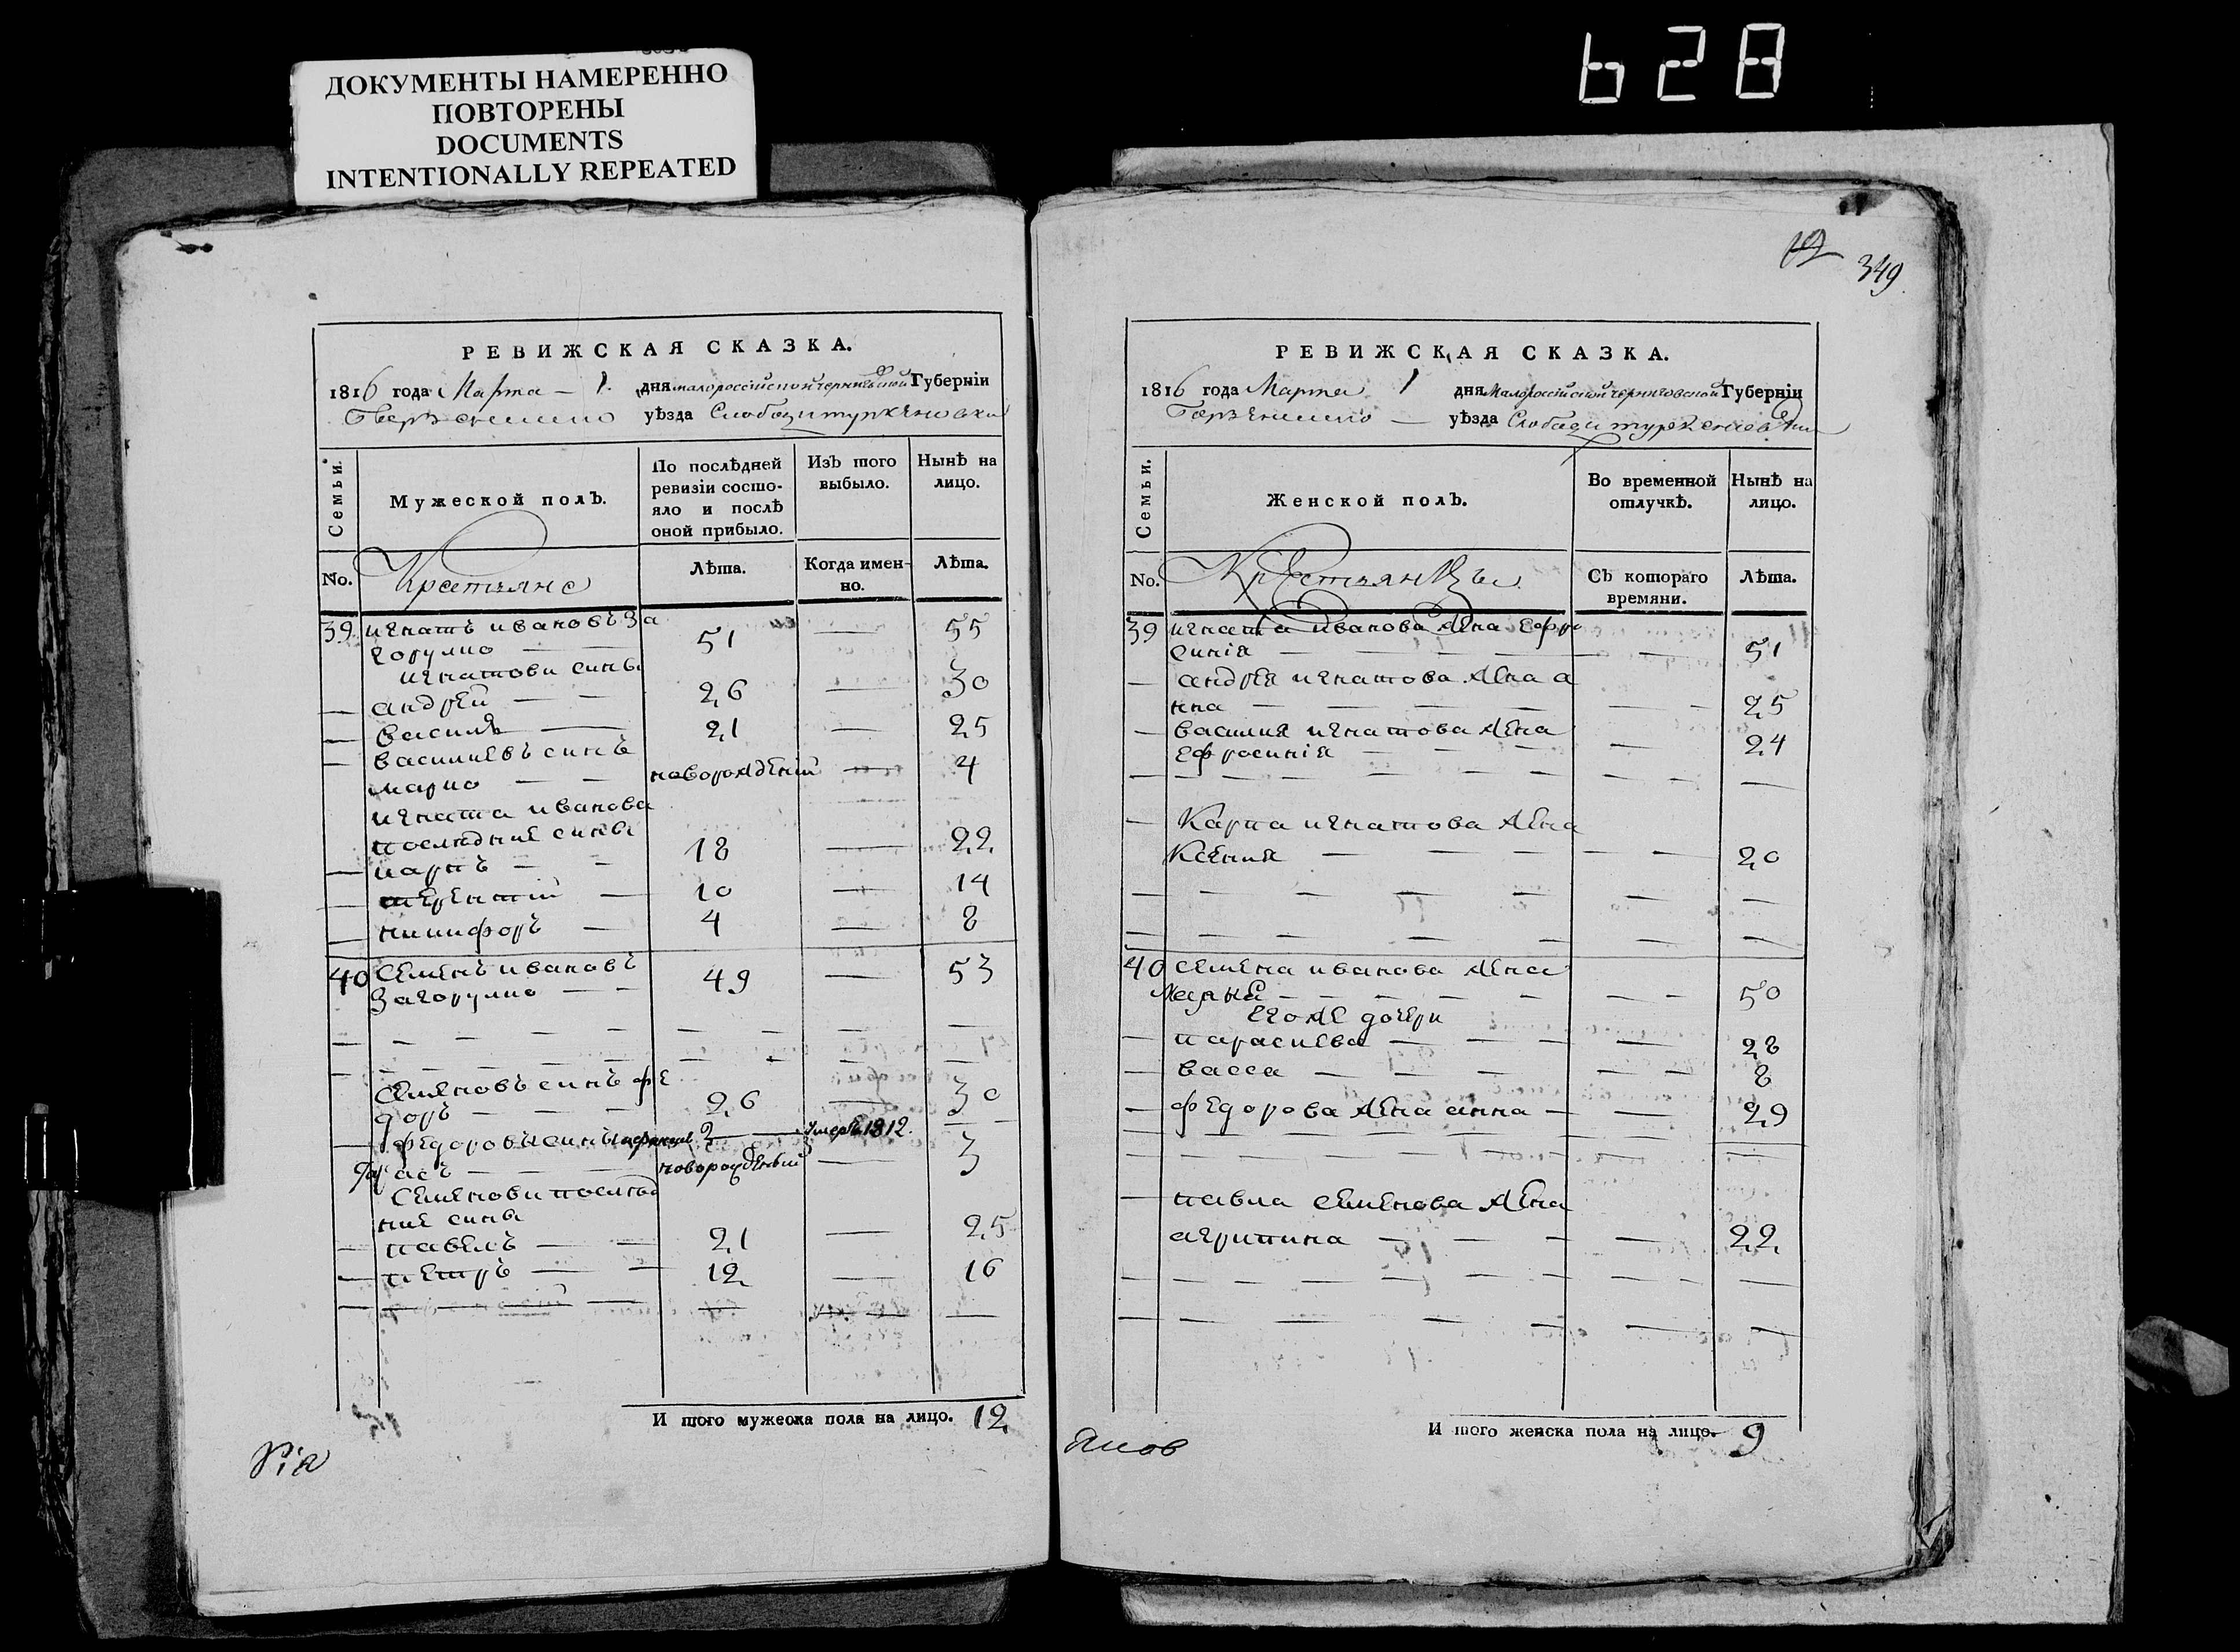 628
ДОКУМЕНТЫ НАМЕРЕННО
ПОВТОРЕНЫ
DOCUMENTS
INTENTIONALLY REPEATED
РЕВИЖСКАЯ СКАЗКА.
1816 года Марта — 1. дня малороссійской черниговской Губерніи
уѣзда Слободи туркеновки
Семьи.
Мужеской полъ.
По послѣдней
ревизіи состо-
яло и послѣ
оной прибыло.
Изъ того
выбыло.
Нынѣ на
лицо.
No.
Крестьяне
Лѣта.
Когда имен-
но.
Лѣта.
39 игнатъ ивановъ за
горулко — — 51 — 55
игнатови сины
— андрей — — 26 — 30
— василя — 21 — 25
— василиевъ синъ
марко — — новорожденій — 4
игната иванова
последние сины
— карпъ — — 18 — 22
— терентий — 10 — 14
— никифоръ — 4 — 8
40 Семенъ ивановъ
загорулко — — 49 — 53
Семеновъ синъ фе
доръ — — — 26 — 30
— Федоровы сины 2 — умеръ 1812. —
асъ — — — новорожденый — 3
Семенови послед
ние сины
— павелъ — — 21 — 25
— петръ — — 12 — 16
И того мужеска пола на лицо. 12
рія
12
349
РЕВИЖСКАЯ СКАЗКА.
1816 года Марта 1 дня Малороссійской черниговской Губерніи
уѣзда Слободи туркеновки
Семьи.
Женской полъ.
Во временной
отлучкѣ.
Нынѣ на
лицо.
No.
Крестьянки
Съ котораго
времяни.
Лѣта.
39 игната иванова жена ефро
синія — — — 51
— андрея игнатова жена а
нна — — — 25
— василия игнатова жена
ефросинія — — — 24
— Карпа игнатова жена
Ксения — — — 20
40 семена иванова жена
— — — 50
его же дочери
— параскева — — — 28
— васса — — — 8
— федорова жена анна — — 29
— павла семенова жена
агрипина — — — 22
И того женска пола на лицо. 9
Яков